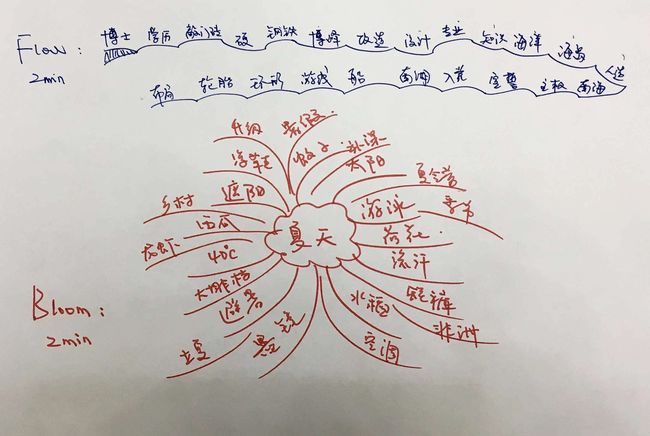 Flow:
2min
博士 学历 敲门砖 砖 钢铁 博峰 改造 设计 专业 知识 海洋 海岛
人造
布局 轮胎 环形 游戏 船 南湖 入党 宣誓 主权 南海
Bloom:
2min
夏天
升级
暑假
蚊子
补课
太阳
夏令营
游泳
季节
荷花
流汗
短裤
非洲
水桶
空调
墨镜
避暑
立夏
大排档
40℃
龙虾
西瓜
乡村
遮阳